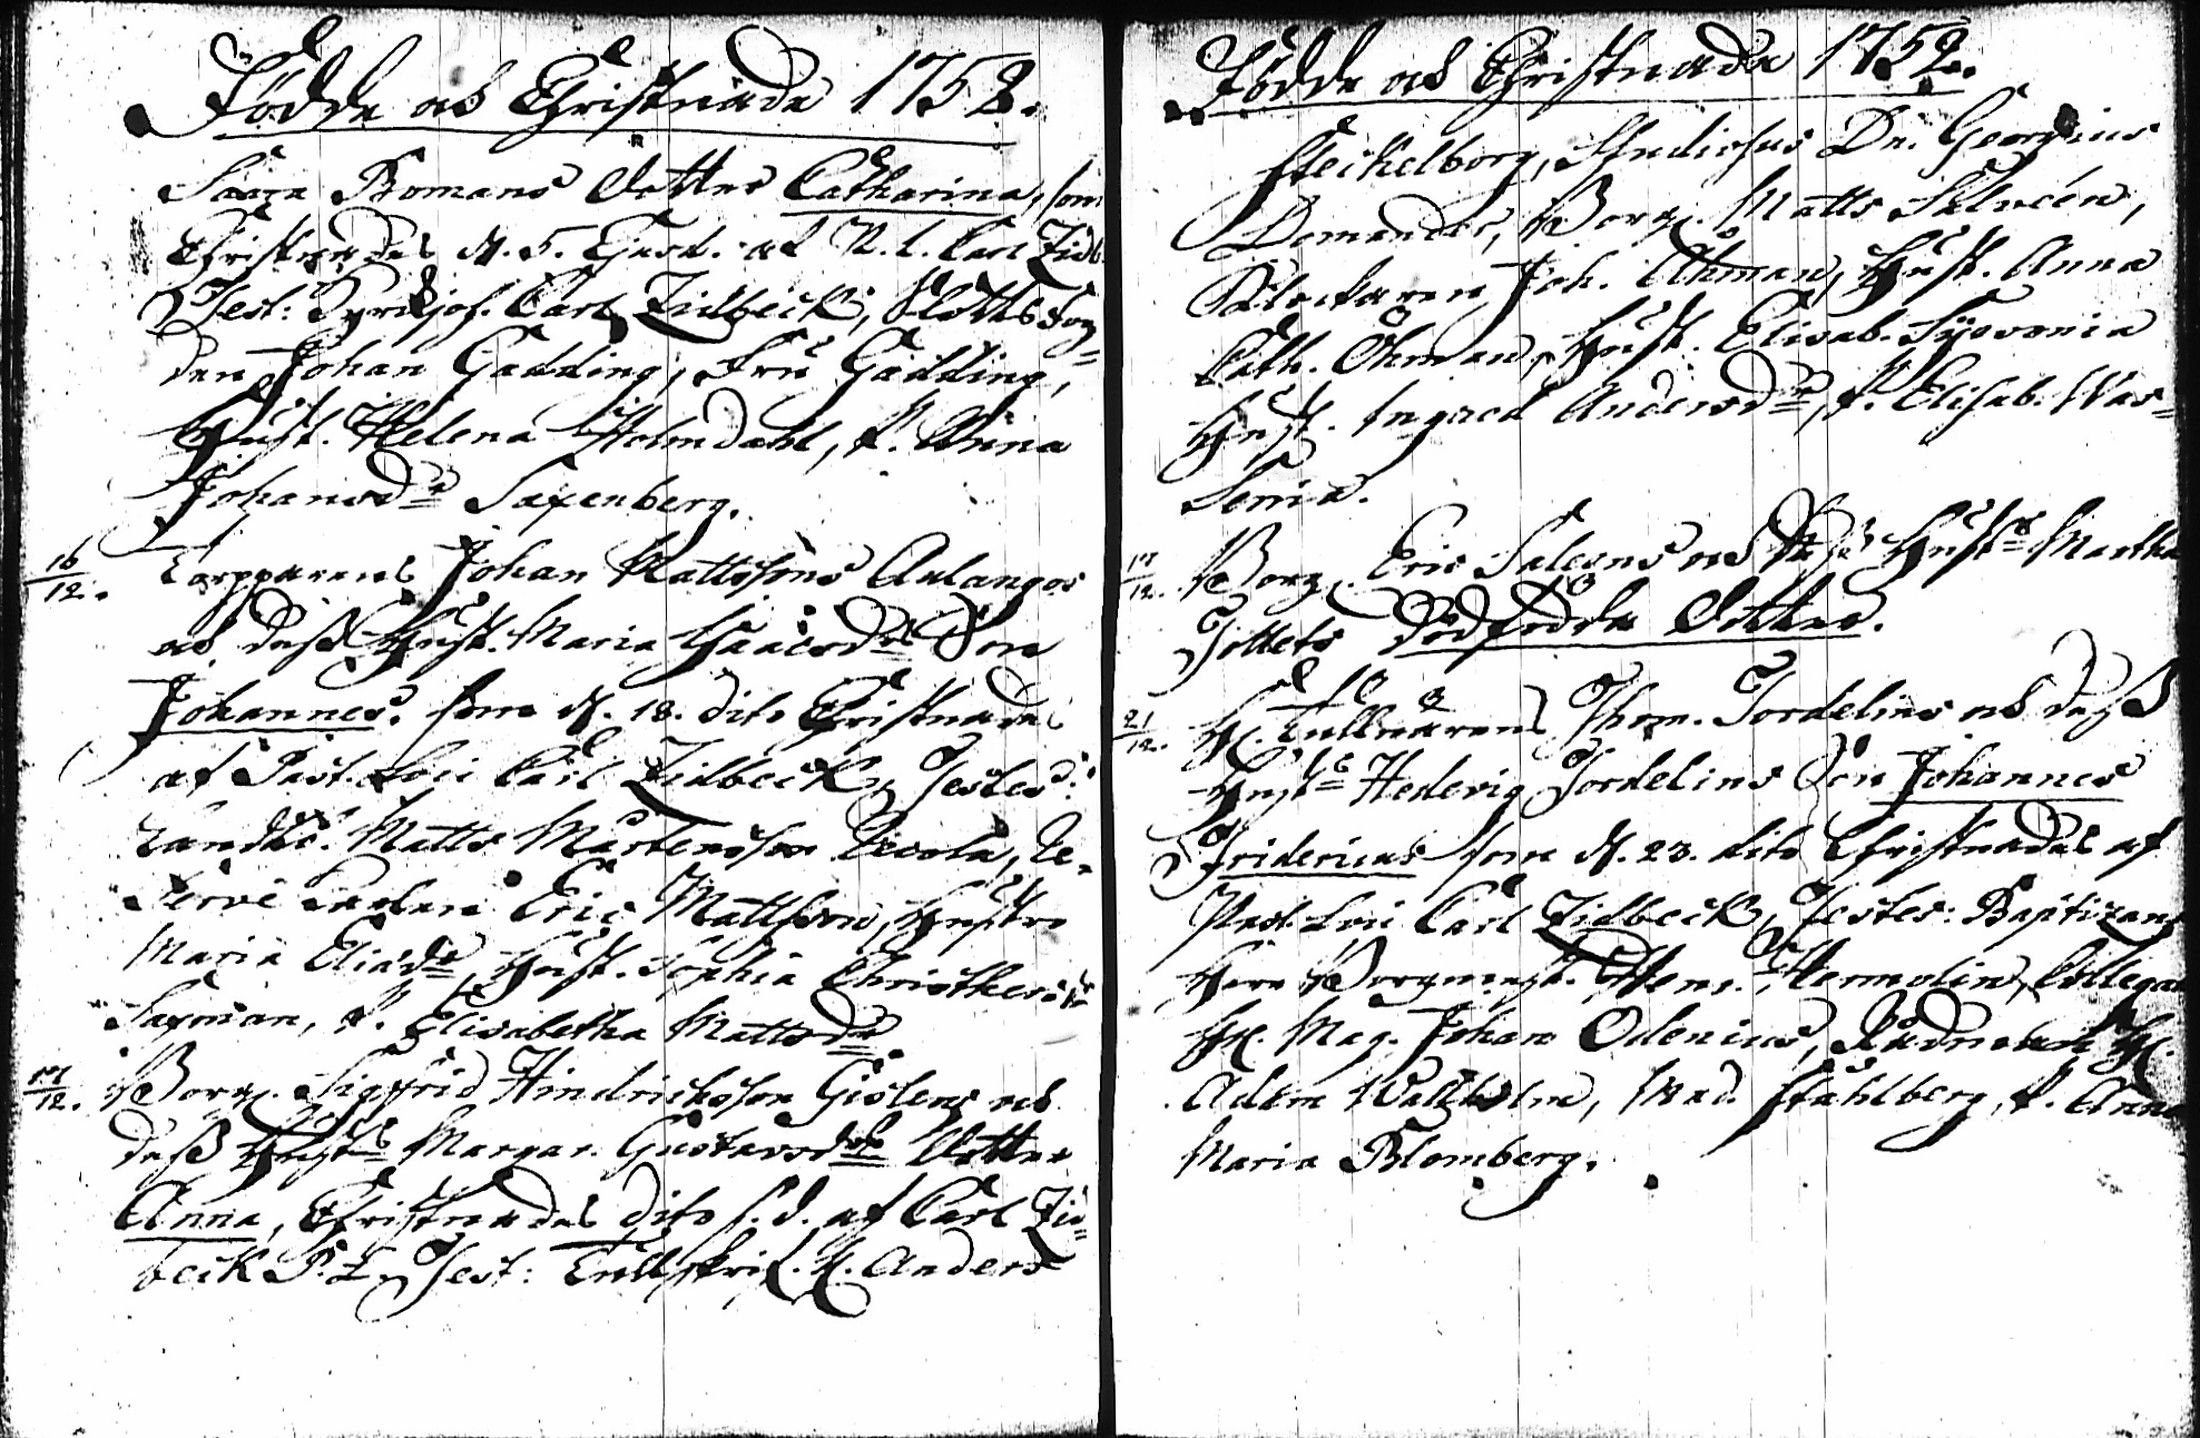 Födde ock Christnade 1752.
Sara Bomans dotter Catharina, som
Christnades d. 5. Ejusd. af N. l. Carl Zidb.
Test: Kyrkjoh. Carl Zidbeck, Slottsfog=
den Johan Gadding, Fru Gadding,
Hust. Helena Holmdahl, P. Anna
Johansdr Saxenberg.
16/12. Torpparens Johan Mattssons Aulangos
ock dess Hust. Maria Isaacsdrs Son
Johannes. som d. 18. dito Christnades
af Past. Loci Carl Zidbeck, Testes:
Matts Mårtensson Re-
serve Karlen Eric Mattsson, Hustru
Maria Eliædr, Hust. Sophia
Saxman, P. Elisabetha Mattsdr
17/12. Borg. Sigfrid Hindrichsson Gislens ock
dess Hust. Margar. Gustavsdrs dotter
Anna, Christnades dito s. d. af Carl Zid=
beck P. L. Test: Tullskrif. H. Anders
Födde ock Christnade 1752.
Steckelborg, Studiosus Dn. Georgius
Domander, Borg. Matts Salucén,
Joh. Åhman, Hust. Anna
Cath. Öhman, Hust. Elisab. Syvonia
Hust. Ingred Andersdr, P. Elisab. Was=
senia.
17/12. Borg. Eric Saleens ock dess Hustrs Martha
Tollets Dödfödda dotter.
21/12. H. Tullnärens Thom. Tordelins ock dess
Hust. Hedevig Tordelins Son Johannes
Fridericus som d. 23. dito Christnades af
Past. Loci Carl Zidbeck, Testes: Baptizans
Herr Borgmest. Henr. Hermolin, Collegan
H. Mag. Johan Odenius, Rådman H.
Adam Wallholm, Mad. Ståhlberg, P. Anna
Maria Blomberg.